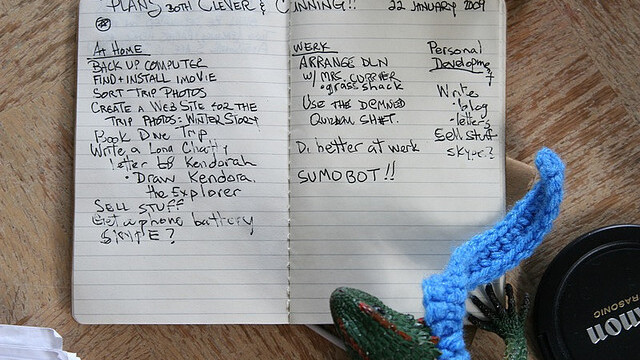 PLANS BOTH CLEVER & CUNNING!! 22 JANUARY 2009
AT HOME
BACK UP COMPUTER
FIND + INSTALL IMOVIE
SORT TRIP PHOTOS
CREATE A WEB SITE FOR THE
TRIP PHOTOS: WINTER STORY
Book Dive Trip
Write a Long Chatty
letter by Kendorah
• Draw Kendora
the Explorer
SELL STUFF
Get a phone battery
SKYPE?
WERK
ARRANGE DLN
W/ MRS.
• grass shack
USE THE DEMNED
SH*T.
Do better at werk
SUMOBOT!!
Personal
Developme
Write
• blog
• letters
Sell stuff
SKYPE?
non
RASONIC